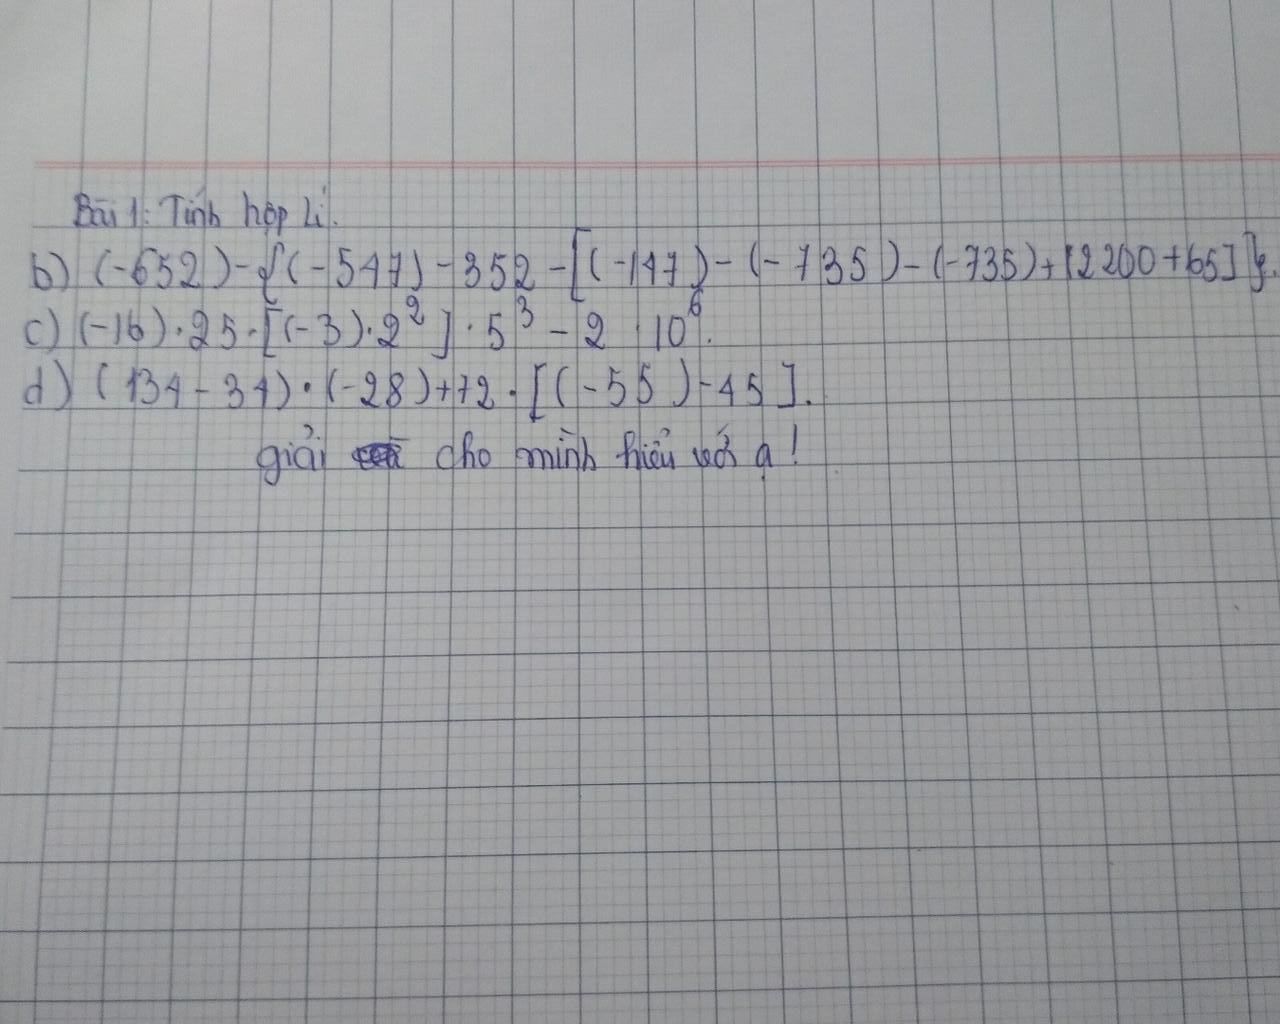 Bài 1: Tính hợp lí.
b) (-652) - {(-547) - 352 - [(-147) - (-735) - (-735) + [2200 + 65]}.
c) (-16) · 25 · [(-3) · 2² ] · 5³ - 2 · 10⁶.
d) (134 - 34) · (-28) + 72 · [(-55) - 45].
giải cho mình hiểu với ạ!